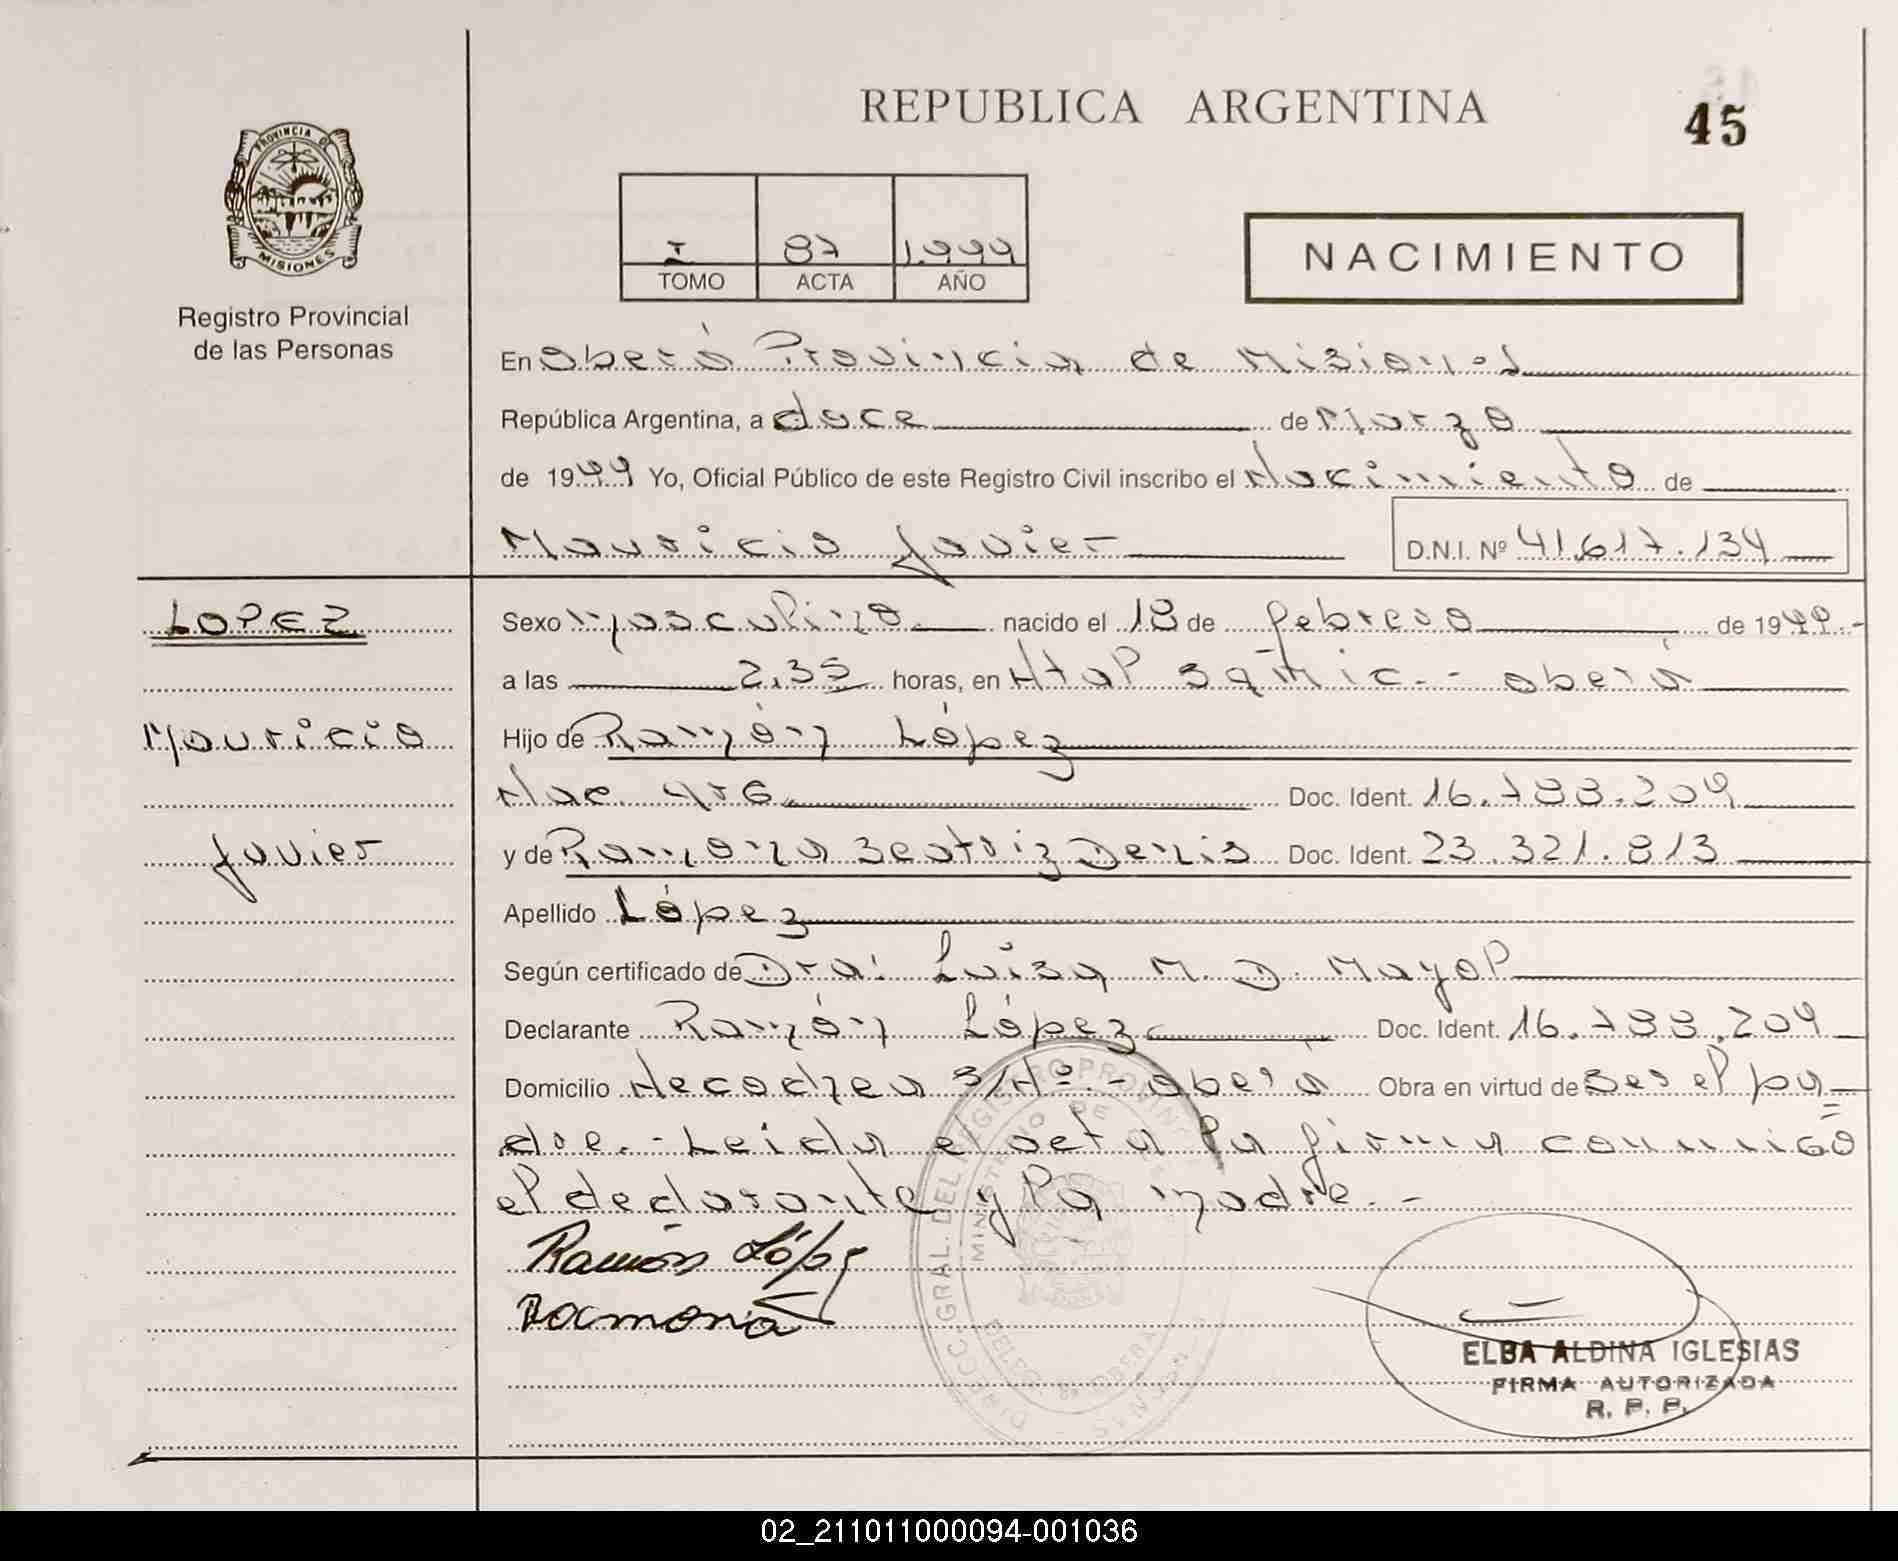 REPUBLICA ARGENTINA
45
PROVINCIA DE
MISIONES
Registro Provincial
de las Personas
I 87 1.999
TOMO ACTA AÑO
NACIMIENTO
En Oberá Provincia de Misiones
República Argentina, a doce de Marzo
de 1999 Yo, Oficial Público de este Registro Civil inscribo el Nacimiento de
Mauricio Javier D.N.I. Nº 41.617.134
LOPEZ
Mauricio
Javier
Sexo masculino nacido el 18 de febrero de 1999.-
a las 2,35 horas, en Htal Samic.- Oberá
Hijo de Ramón López
Nac. Arg. Doc. Ident. 16.788.209
y de Ramona Beatriz Denis Doc. Ident. 23.321.813
Apellido López
Según certificado de Dra: Luisa M. D. Mayol
Declarante Ramón López Doc. Ident. 16.788.209
Domicilio Necochea S/Nº.- Oberá Obra en virtud de ser el pa=
dre.- Leida el acta la firma conmigo
el declarante y la madre.-
Ramón López
Ramona
DIRECC. GRAL. DEL REGISTRO PROVINC
MINISTERIO DE
DELEG. OBERA
ELBA ALDINA IGLESIAS
FIRMA AUTORIZADA
R. P. P.
02_211011000094-001036